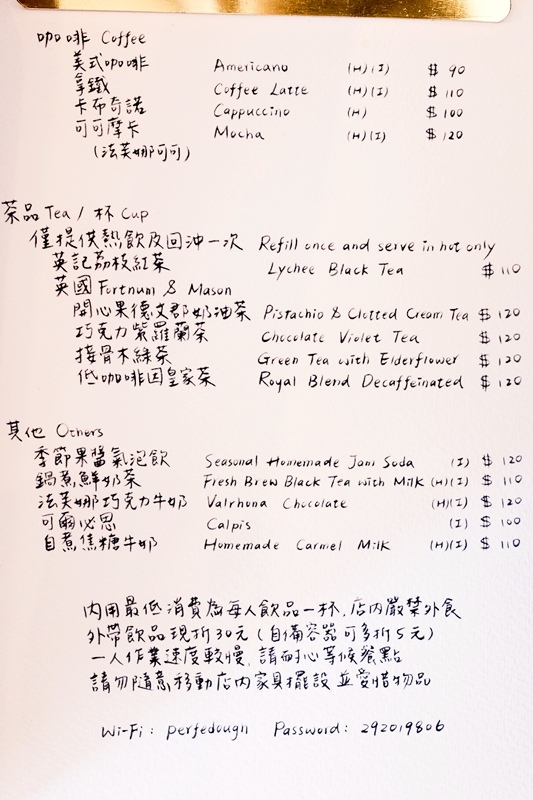 咖啡 Coffee
美式咖啡 Americano (H)(I) $ 90
拿鐵 Coffee Latte (H)(I) $ 110
卡布奇諾 Cappuccino (H) $ 100
可可摩卡 Mocha (H)(I) $ 120
(法芙娜可可)
茶品 Tea / 杯 Cup
僅提供熱飲及回沖一次 Refill once and serve in hot only
英記荔枝紅茶 Lychee Black Tea $ 110
英國 Fortnum & Mason
開心果德文郡奶油茶 Pistachio & Clotted Cream Tea $ 120
巧克力紫羅蘭茶 Chocolate Violet Tea $ 120
接骨木綠茶 Green Tea with Elderflower $ 120
低咖啡因皇家茶 Royal Blend Decaffeinated $ 120
其他 Others
季節果醬氣泡飲 Seasonal Homemade Jam Soda (I) $ 120
鍋煮鮮奶茶 Fresh Brew Black Tea with Milk (H)(I) $ 110
法芙娜巧克力牛奶 Valrhona Chocolate (H)(I) $ 120
可爾必思 Calpis (I) $ 100
自煮焦糖牛奶 Homemade Carmel Milk (H)(I) $ 110
內用最低消費為每人飲品一杯.店內嚴禁外食
外帶飲品現折30元(自備容器可多折5元)
一人作業速度較慢,請耐心等候餐點
請勿隨意移動店內家具擺設並愛惜物品
Wi-Fi: perfedough Password: 292019806